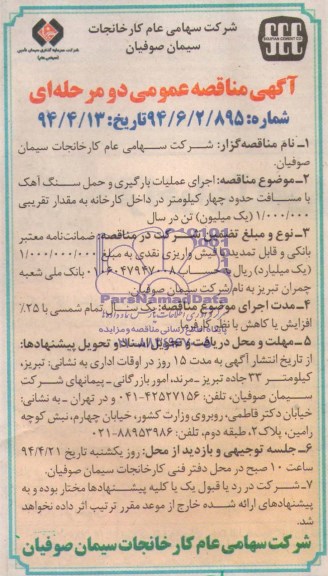 شرکت سهامی عام کارخانجات
سیمان صوفیان
آگهی مناقصه عمومی دو مرحله‌ای
شماره: ۹۴/۶/۲/۸۹۵ تاریخ: ۹۴/۴/۱۳
۱-نام مناقصه‌گزار: شرکت سهامی عام کارخانجات سیمان
صوفیان.
۲-موضوع مناقصه: اجرای عملیات بارگیری و حمل سنگ آهک
با مسافت حدود چهار کیلومتر در داخل کارخانه به مقدار تقریبی
۱/۰۰۰/۰۰۰ (یک میلیون) تن در سال
۳-نوع و مبلغ تضمین شرکت در مناقصه: ضمانت‌نامه معتبر
بانکی و قابل تمدید یا فیش واریزی نقدی به مبلغ ۱/۰۰۰/۰۰۰/۰۰۰
(یک میلیارد) ریال به حساب بانک ملی شعبه
چمران تبریز به نام شرکت سیمان صوفیان.
۴-مدت اجرای موضوع مناقصه: یک سال تمام شمسی با ۲۵٪
افزایش یا کاهش با نظر کارفرما.
۵-مهلت و محل دریافت و تحویل اسناد و تحویل پیشنهادها:
از تاریخ انتشار آگهی به مدت ۱۵ روز در اوقات اداری به نشانی: تبریز،
کیلومتر ۳۳ جاده تبریز-مرند، امور بازرگانی-پیمانهای شرکت
سیمان صوفیان، تلفن: ۴۲۵۲۷۱۵۶-۰۴۱ و در تهران -به نشانی:
خیابان دکتر فاطمی، روبروی وزارت کشور، خیابان چهارم، نبش کوچه
رامین، پلاک۲، طبقه دوم، تلفن: ۸۸۹۵۳۹۸۶-۰۲۱
۶-جلسه توجیهی و بازدید از محل: روز یکشنبه تاریخ ۹۴/۴/۲۱
ساعت ۱۰ صبح در محل دفتر فنی کارخانجات سیمان صوفیان.
۷-شرکت در رد یا قبول یک یا کلیه پیشنهادها مختار بوده و به
پیشنهادهای ارائه شده خارج از موعد مقرر ترتیب اثر داده نخواهد
شد.
شرکت سهامی عام کارخانجات سیمان صوفیان
ParsNamadData